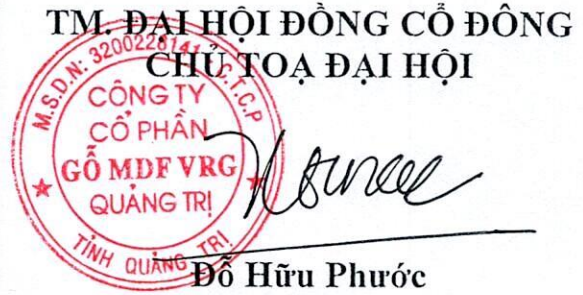 TM. ĐẠI HỘI ĐỒNG CỔ ĐÔNG
CHỦ TOẠ ĐẠI HỘI
M.S.D.N: 3200228141 - C.T.C.P
CÔNG TY
CỔ PHẦN
GỖ MDF VRG
QUẢNG TRỊ
TỈNH QUẢNG TRỊ
Đỗ Hữu Phước